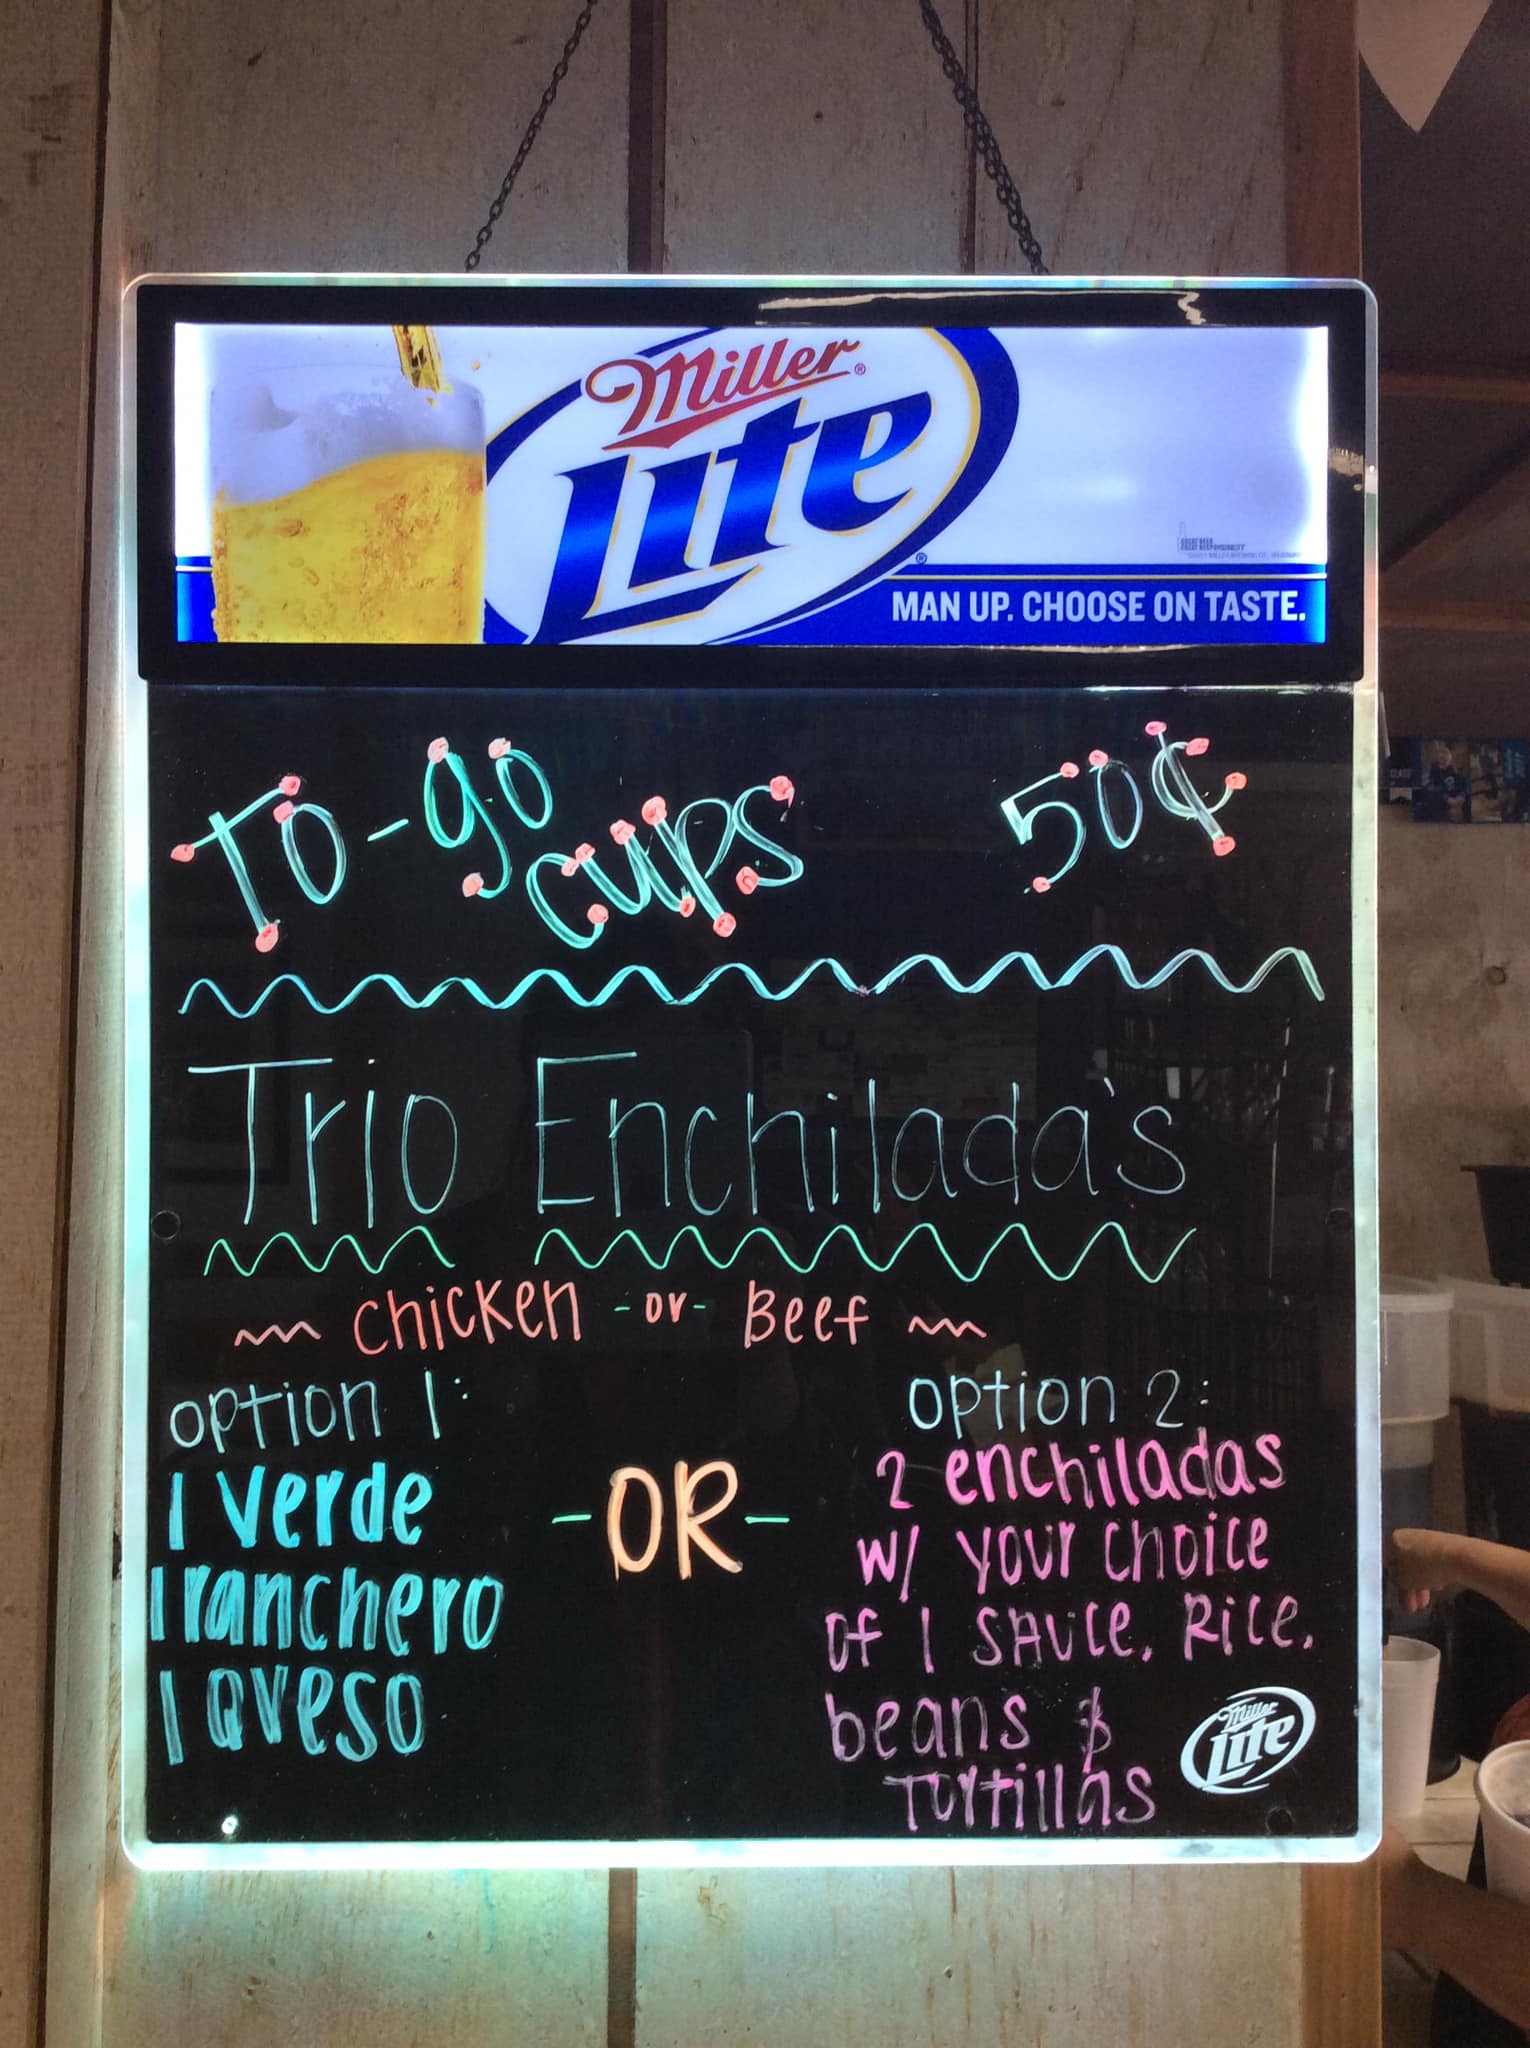 Miller
Lite
MAN UP. CHOOSE ON TASTE.
To-go cups 50¢
Trio Enchilada's
Chicken -or- Beef
option 1:
1 verde
1 ranchero
1 qveso
-OR-
option 2:
2 enchiladas
w/ your choice
of 1 sauce, Rice,
beans &
tortillas
Miller
Lite